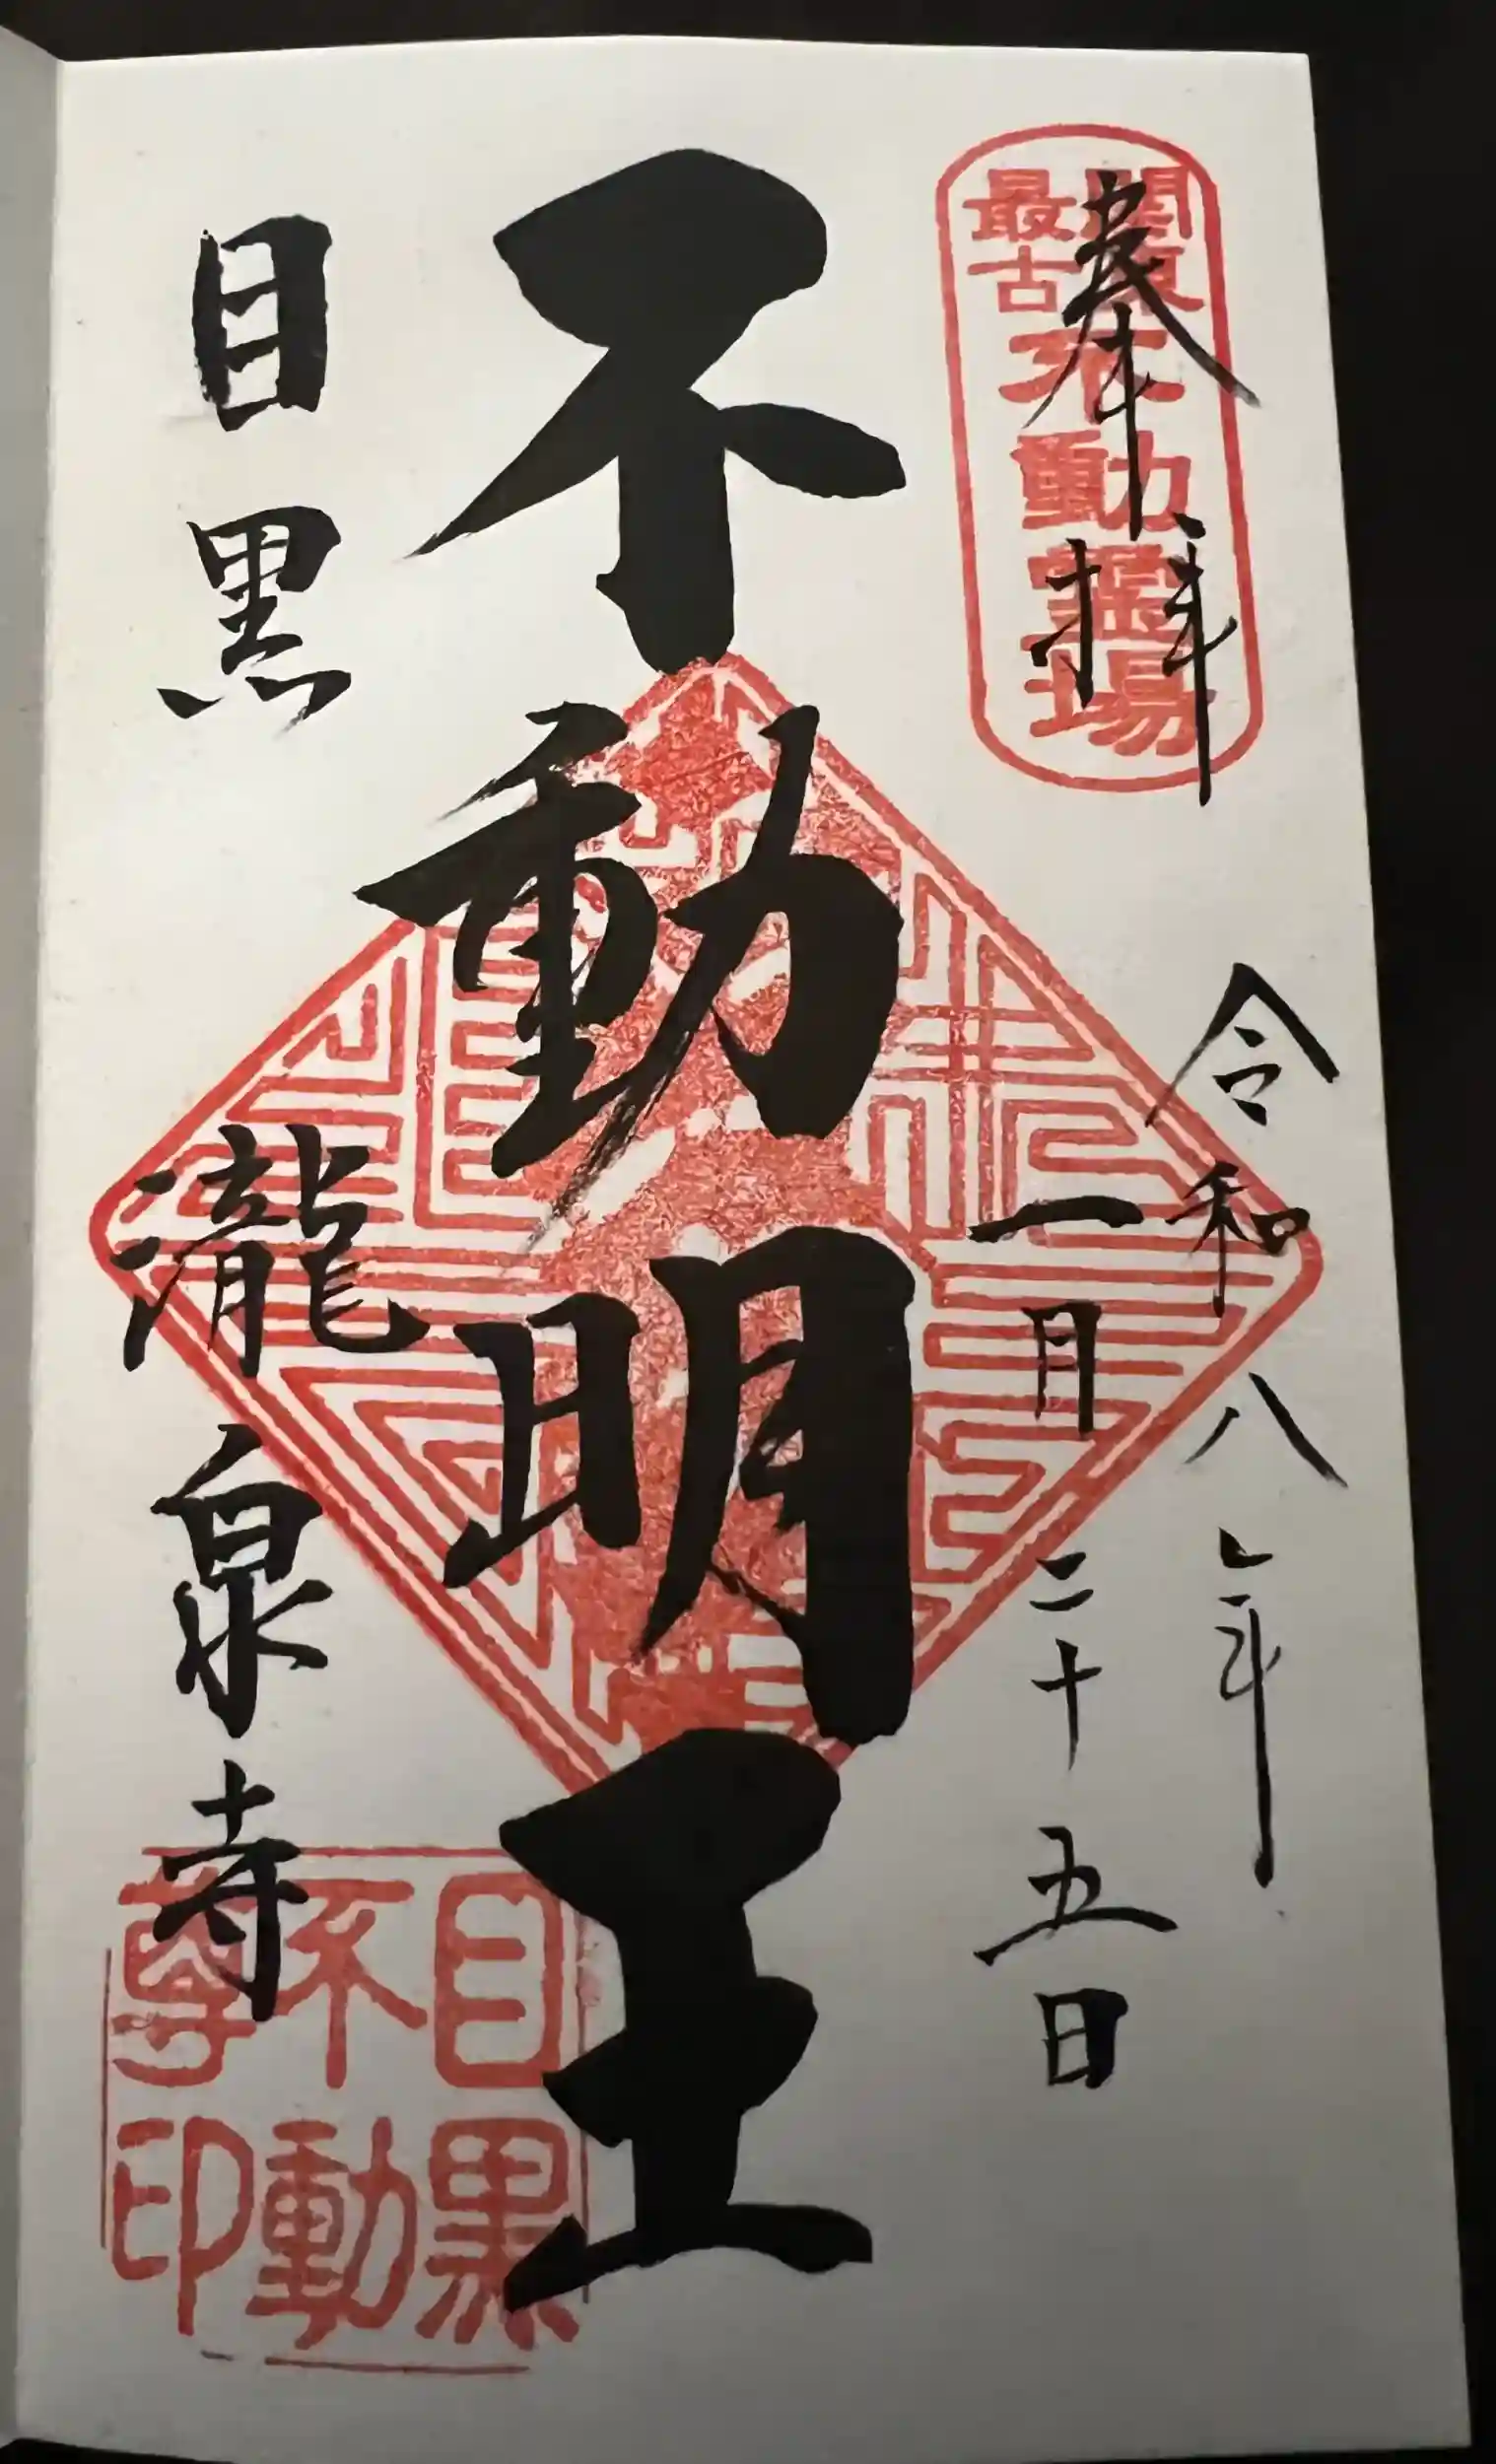 奉拝
關東
最古
不動霊場
令和八年
一月二十五日
不動明王
目黒
瀧泉寺
目黒
不動
尊印